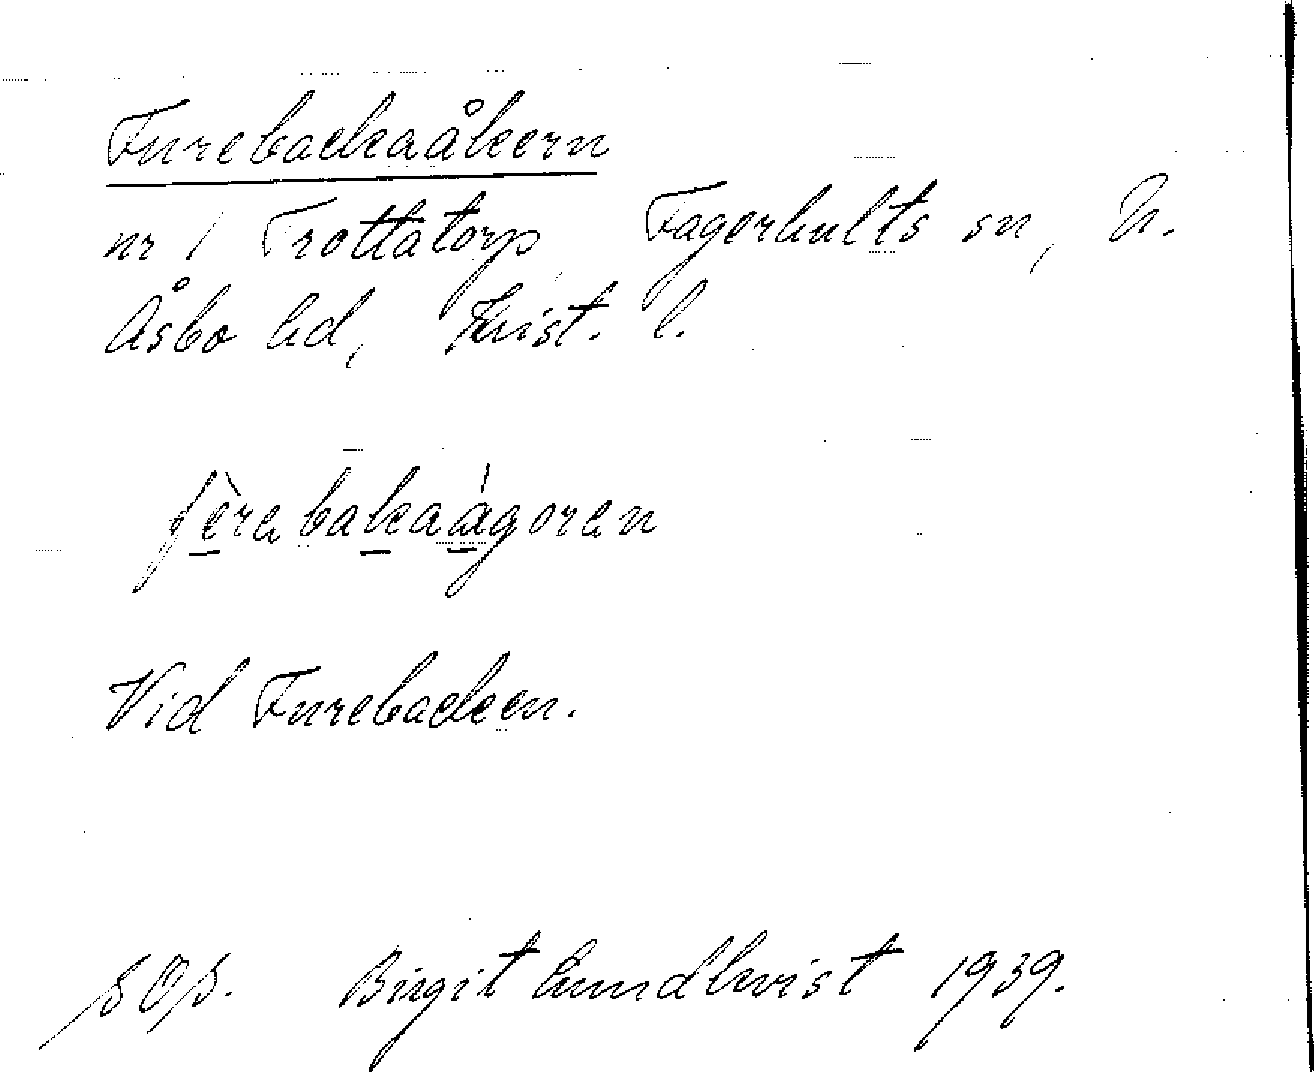 Furebackaåkern
nr 1 Trottatorp, Fagerhults sn, N.
Åsbo hd, Krist. l.
fèrebakaágoren
Vid Furebacken.
Birgit Lundkvist 1939.